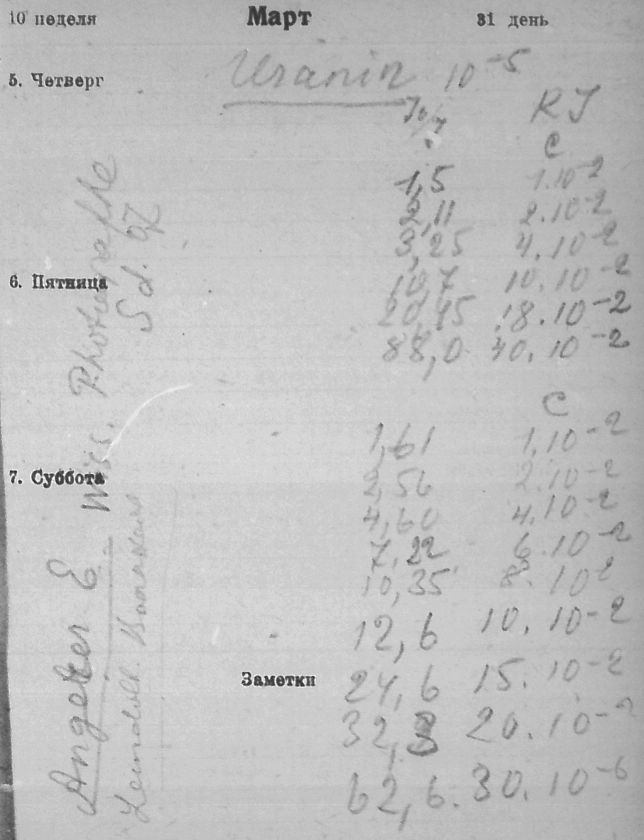 10 неделя Март 31 день
5. Четверг Uranin 10⁻⁵
I₀/I KJ
C
1,5 1.10⁻²
2,11 2.10⁻²
3,25 4.10⁻²
6. Пятница 10,7 10.10⁻²
20,45 18.10⁻²
88,0 40.10⁻²
C
1,61 1.10⁻²
7. Суббота 2,56 2.10⁻²
4,60 4.10⁻²
7,22 6.10⁻²
10,35 8.10²
12,6 10.10⁻²
Заметки 24,6 15.10⁻²
32,8 20.10⁻²
62,6. 30.10⁻⁶
Angerer E. Wiss. Photografie